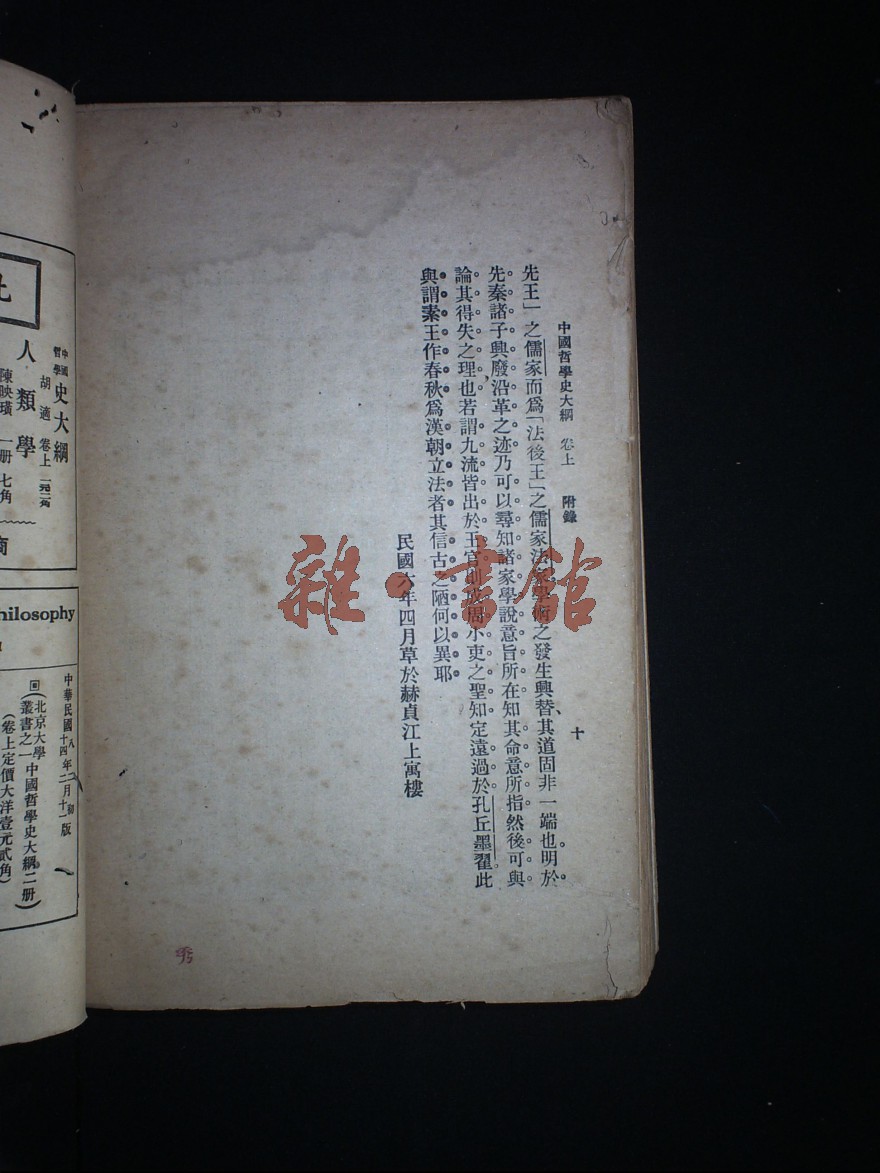 中國哲學史大綱 卷上 附錄 十
先王」之儒家而爲「法後王」之儒家法家學術之發生興替、其道固非一端也。明於
先秦諸子興廢沿革之迹乃可以尋知諸家學說意旨所在知其命意所指然後可與
論其得失之理也、若謂九流皆出於王官則成周小吏之聖知定遠過於孔丘墨翟此
與謂素王作春秋爲漢朝立法者其信古之陋何以異耶
民國六年四月草於赫貞江上寓樓
雜·書館
中國哲學史大綱
胡適 卷上 一元二角
人類學
陳映璜 一册 七角
商
hilosophy
中華民國八年二月初版
十四年二月十一版
(北京大學叢書之一中國哲學史大綱二册)
(卷上定價大洋壹元貳角)